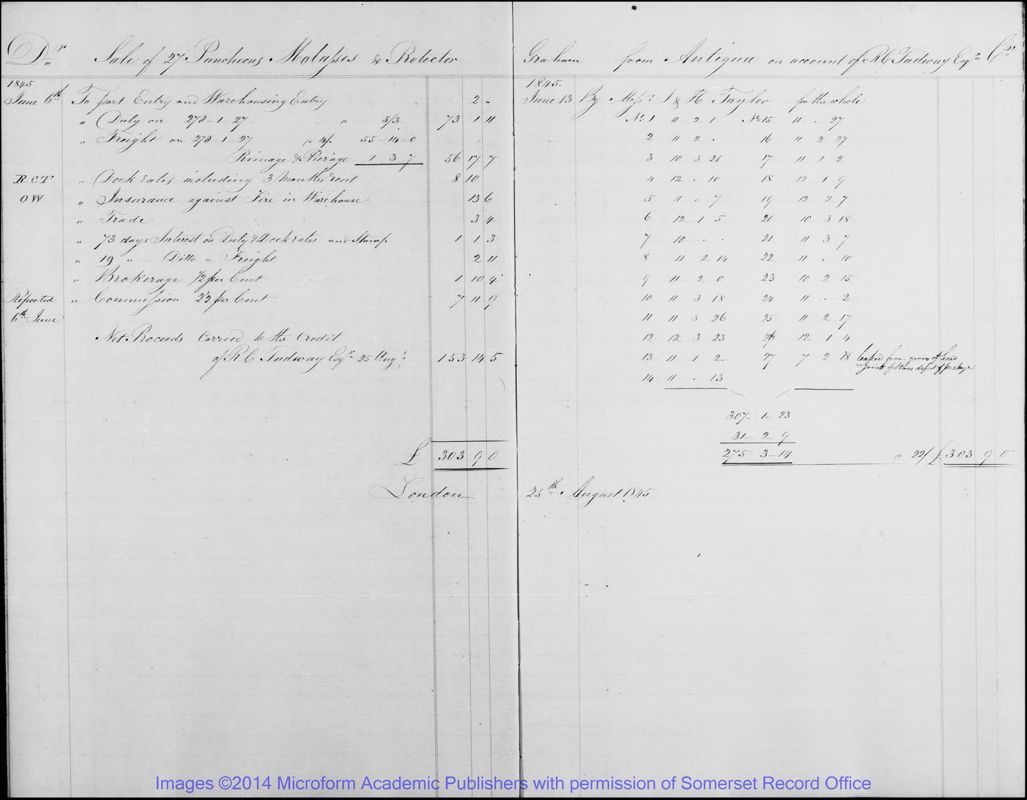 Dr Sale of 27 Puncheons Molasses & Protector Graham from Antigua on account of R C Tudway Esqr Cr
1845
June 6th To part Entry and Warehousing Entry 2 -
" Duty on 278-1-27 " 5/3 73 1 11
" Freight on 278-1-27 " 4/- 55-14-0
Primage & Pierage 1 3 7 56 17 7
R C T " Dock rates including 3 months rent 8 10
O W " Insurance against Fire in Warehouse 13 6
" Trade 3 4
" 73 days Interest on Duty & Dock rates and Stamp 1 1 3
" 19 " Ditto " Freight 2 11
" Brokerage 1/2 per Cent 1 10 4
Reported " Commission 2 1/2 per Cent 7 11 9
6th June
Net Proceeds Carried to the Credit
of R C Tudway Esqr 25 Augt 153 14 5
£ 303 9 0
London
1845
June 13 By Messrs I & H Taylor for the whole
No 1 11 2 1 No 15 11 . 27
2 11 2 . 16 11 2 27
3 10 3 21 17 11 1 2
4 12 . 10 18 12 1 9
5 11 . 7 19 12 2 7
6 12 1 5 20 10 3 18
7 10 . . 21 11 3 7
8 11 2 14 22 11 . 10
9 11 2 0 23 10 2 15
10 11 3 18 24 11 . 2
11 11 3 26 25 11 2 17
12 12 3 23 26 12 1 4
13 11 1 2 27 7 2 18
14 11 . 13
307-1-23
31-2-9
275-3-14 a 22/ £ 303 9 0
25th August 1845
Images ©2014 Microform Academic Publishers with permission of Somerset Record Office